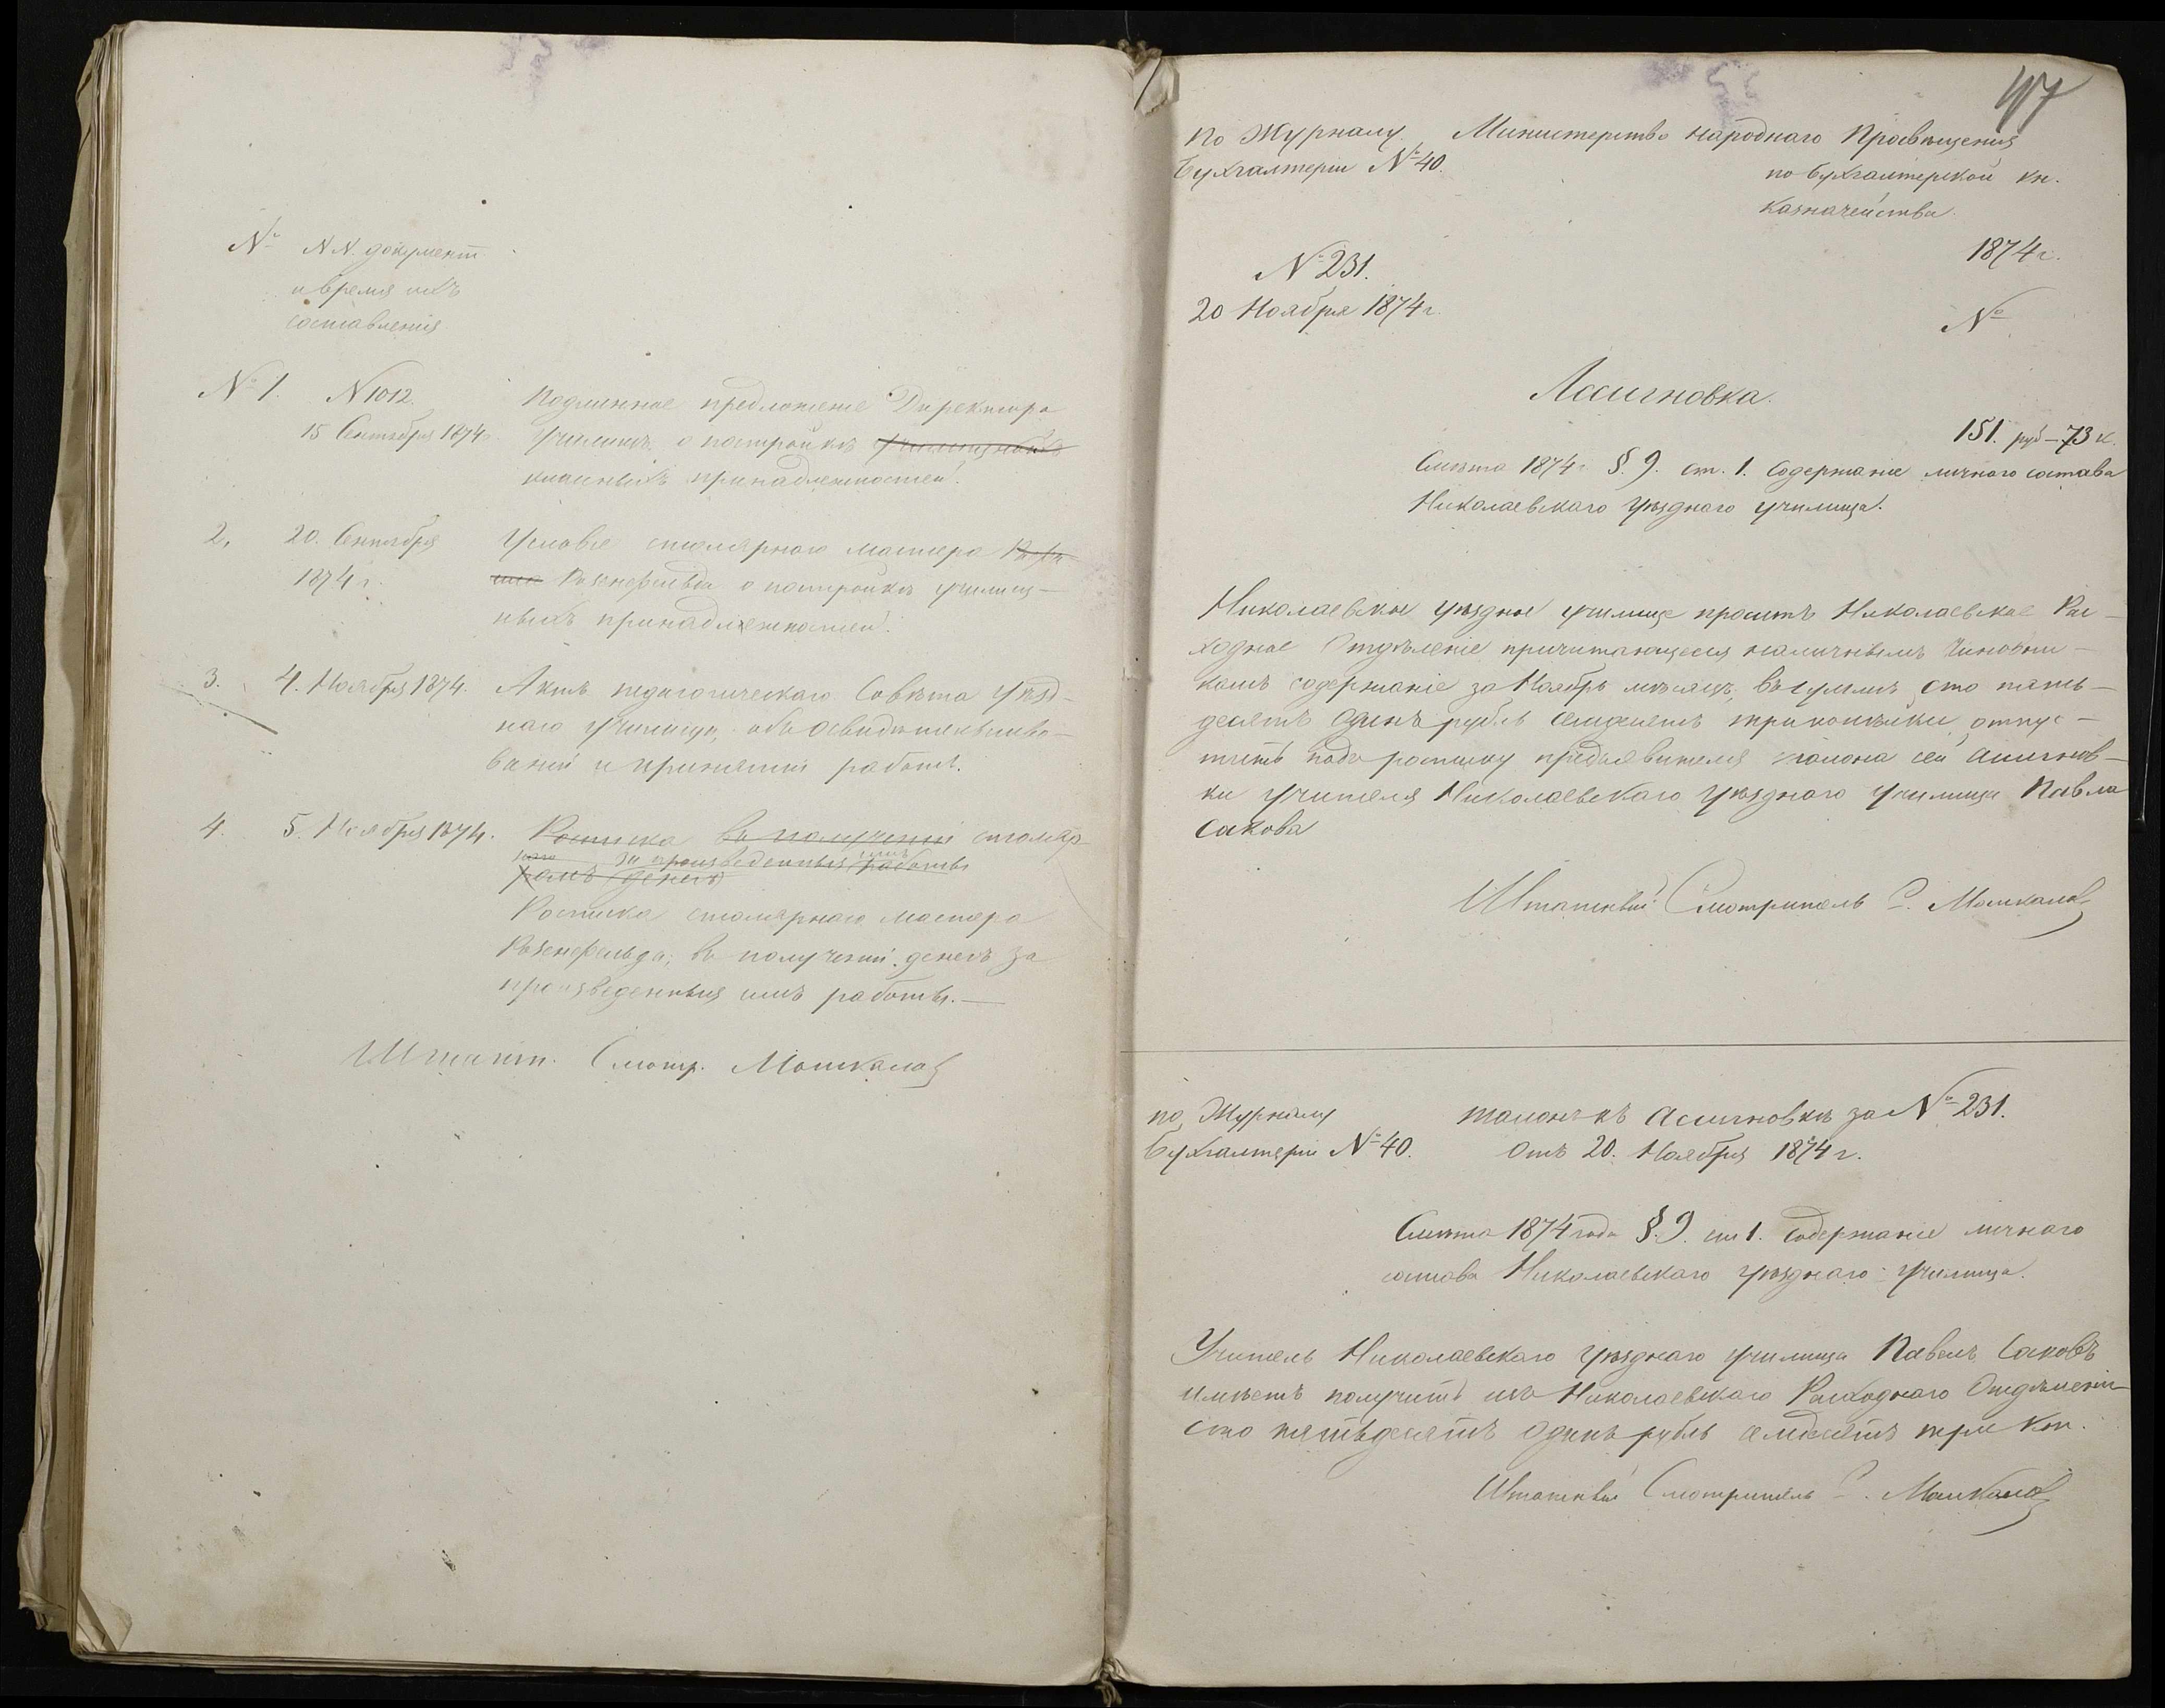 № NN. документ
и время ихъ
составления
№ 1. N 1012. Подлинное предложение Директора
15 Сентября 1874 г. Училищъ о постройкѣ училищныхъ
принадлежностей.
2. 20. Сентября Условіе столярнаго мастера
1874 г. Розенфельда о постройкѣ училищ-
ныхъ принадлежностей.
3. 4. Ноября 1874. Актъ педагогическаго Совѣта Уѣзд-
наго Училища, объ освидѣтельство-
ваніи и принятіи работъ.
4. 5. Ноября 1874. Росписка въ полученіи столяр-
наго за произведенныя имъ работы
денегъ
Росписка столярнаго мастера
Розенфельда, въ полученіи денегъ за
произведенныя имъ работы.—
Штатн. Смотр. Мошкалов
47
По Журналу Министерство народнаго Просвѣщения
Бухгалтеріи № 40. по бухгалтерской кн.
казначейства.
1874 г.
№ 231.
20 Ноября 1874 г. №
Ассигновка.
151. руб – 73 к.
Смѣта 1874 г. §. 9. ст. 1. Содержаніе личнаго состава
Николаевскаго Уѣзднаго училища.
Николаевское уѣздное училище проситъ Николаевское Рас-
ходное Отдѣленіе причитающееся наличнымъ Чиновни-
камъ содержаніе за Ноябрь мѣсяцъ, въ суммѣ сто пять-
десятъ одинъ рубль семдесятъ три копѣйки отпус-
тить подъ росписку предъявителя талона сей ассигнов-
ки учителя Николаевскаго Уѣзднаго Училища Павла
Сакова
Штатный Смотритель С. Мошкалов
по Журналу талонъ къ асигновкѣ за № 231.
Бухгалтеріи № 40. Отъ 20. Ноября 1874 г.
Смѣта 1874 года §. 9. ст 1. Содержаніе личнаго
состава Николаевскаго уѣзднаго училища.
Учитель Николаевскаго уѣзднаго училища Павелъ Саковъ
имѣетъ получить изъ Николаевскаго Расходнаго Отдѣленія
сто пятьдесятъ одинъ рубль семдесятъ три коп.
Штатный Смотритель С. Мошкалов